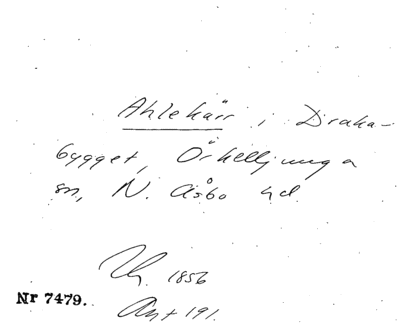 Ahlekärr i Draka-
bygget, Örkelljunga
sn, N. Åsbo hd
1856
Nr 7479.
Ant 191.